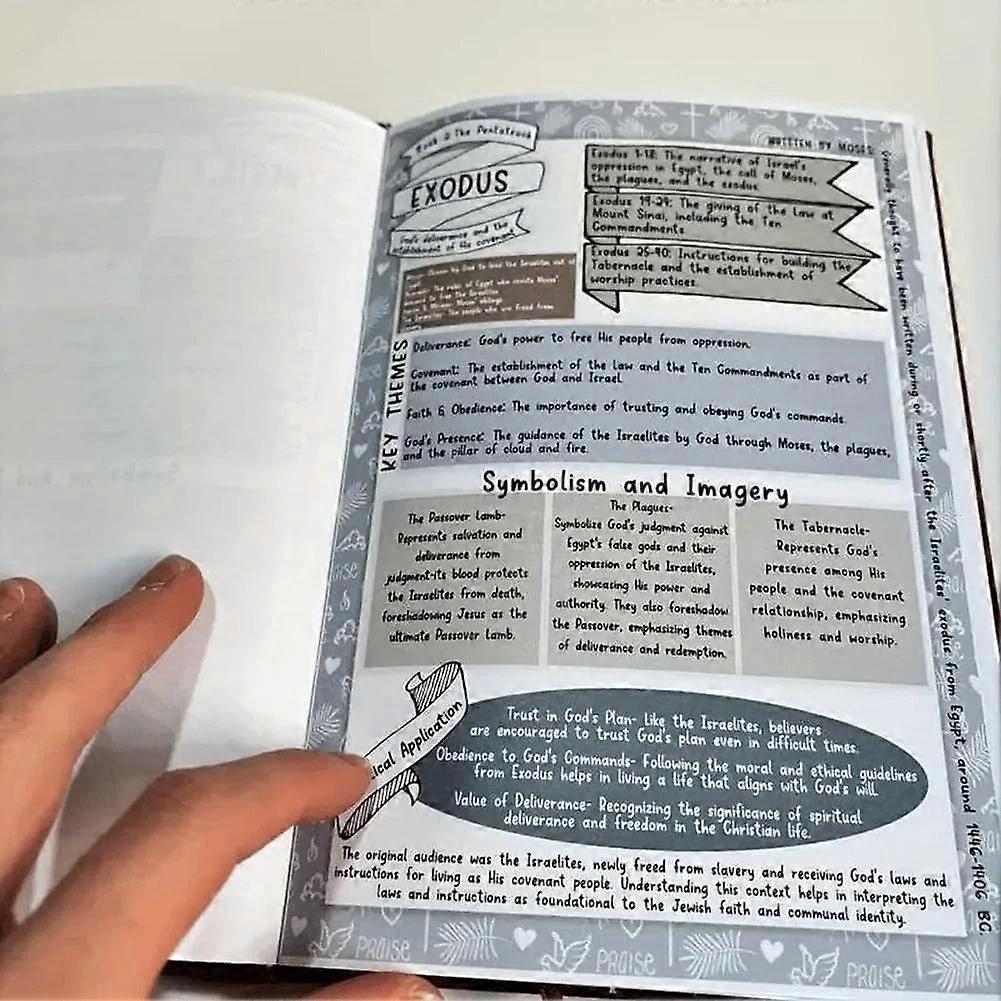 Book & The Pentateuch
EXODUS
God's deliverance and the
establishment of His covenant
WRITTEN BY MOSES
Exodus 1-18: The narrative of Israel's
oppression in Egypt, the call of Moses,
the plagues, and the exodus.
Exodus 19-24: The giving of the Law at
Mount Sinai, including the Ten
Commandments.
Exodus 25-40: Instructions for building the
Tabernacle and the establishment of
worship practices.
Chosen by God to lead the Israelites out of
The ruler of Egypt who resists Moses'
to free the Israelites
Moses' siblings
The people who are freed from
KEY THEMES
Deliverance: God's power to free His people from oppression.
Covenant: The establishment of the Law and the Ten Commandments as part of
the covenant between God and Israel.
Faith & Obedience: The importance of trusting and obeying God's commands.
God's Presence: The guidance of the Israelites by God through Moses, the plagues,
and the pillar of cloud and fire.
Symbolism and Imagery
The Passover Lamb-
Represents salvation and
deliverance from
judgment-its blood protects
the Israelites from death,
foreshadowing Jesus as the
ultimate Passover Lamb.
The Plagues-
Symbolize God's judgment against
Egypt's false gods and their
oppression of the Israelites,
showcasing His power and
authority. They also foreshadow
the Passover, emphasizing themes
of deliverance and redemption.
The Tabernacle-
Represents God's
presence among His
people and the covenant
relationship, emphasizing
holiness and worship.
ical Application
Trust in God's Plan- Like the Israelites, believers
are encouraged to trust God's plan even in difficult times.
Obedience to God's Commands- Following the moral and ethical guidelines
from Exodus helps in living a life that aligns with God's will.
Value of Deliverance- Recognizing the significance of spiritual
deliverance and freedom in the Christian life.
The original audience was the Israelites, newly freed from slavery and receiving God's laws and
instructions for living as His covenant people. Understanding this context helps in interpreting the
laws and instructions as foundational to the Jewish faith and communal identity.
Generally thought to have been written during or shortly after the Israelites' exodus from Egypt, around 1446-1406 BC.
PRAISE
PRAISE
PRAISE